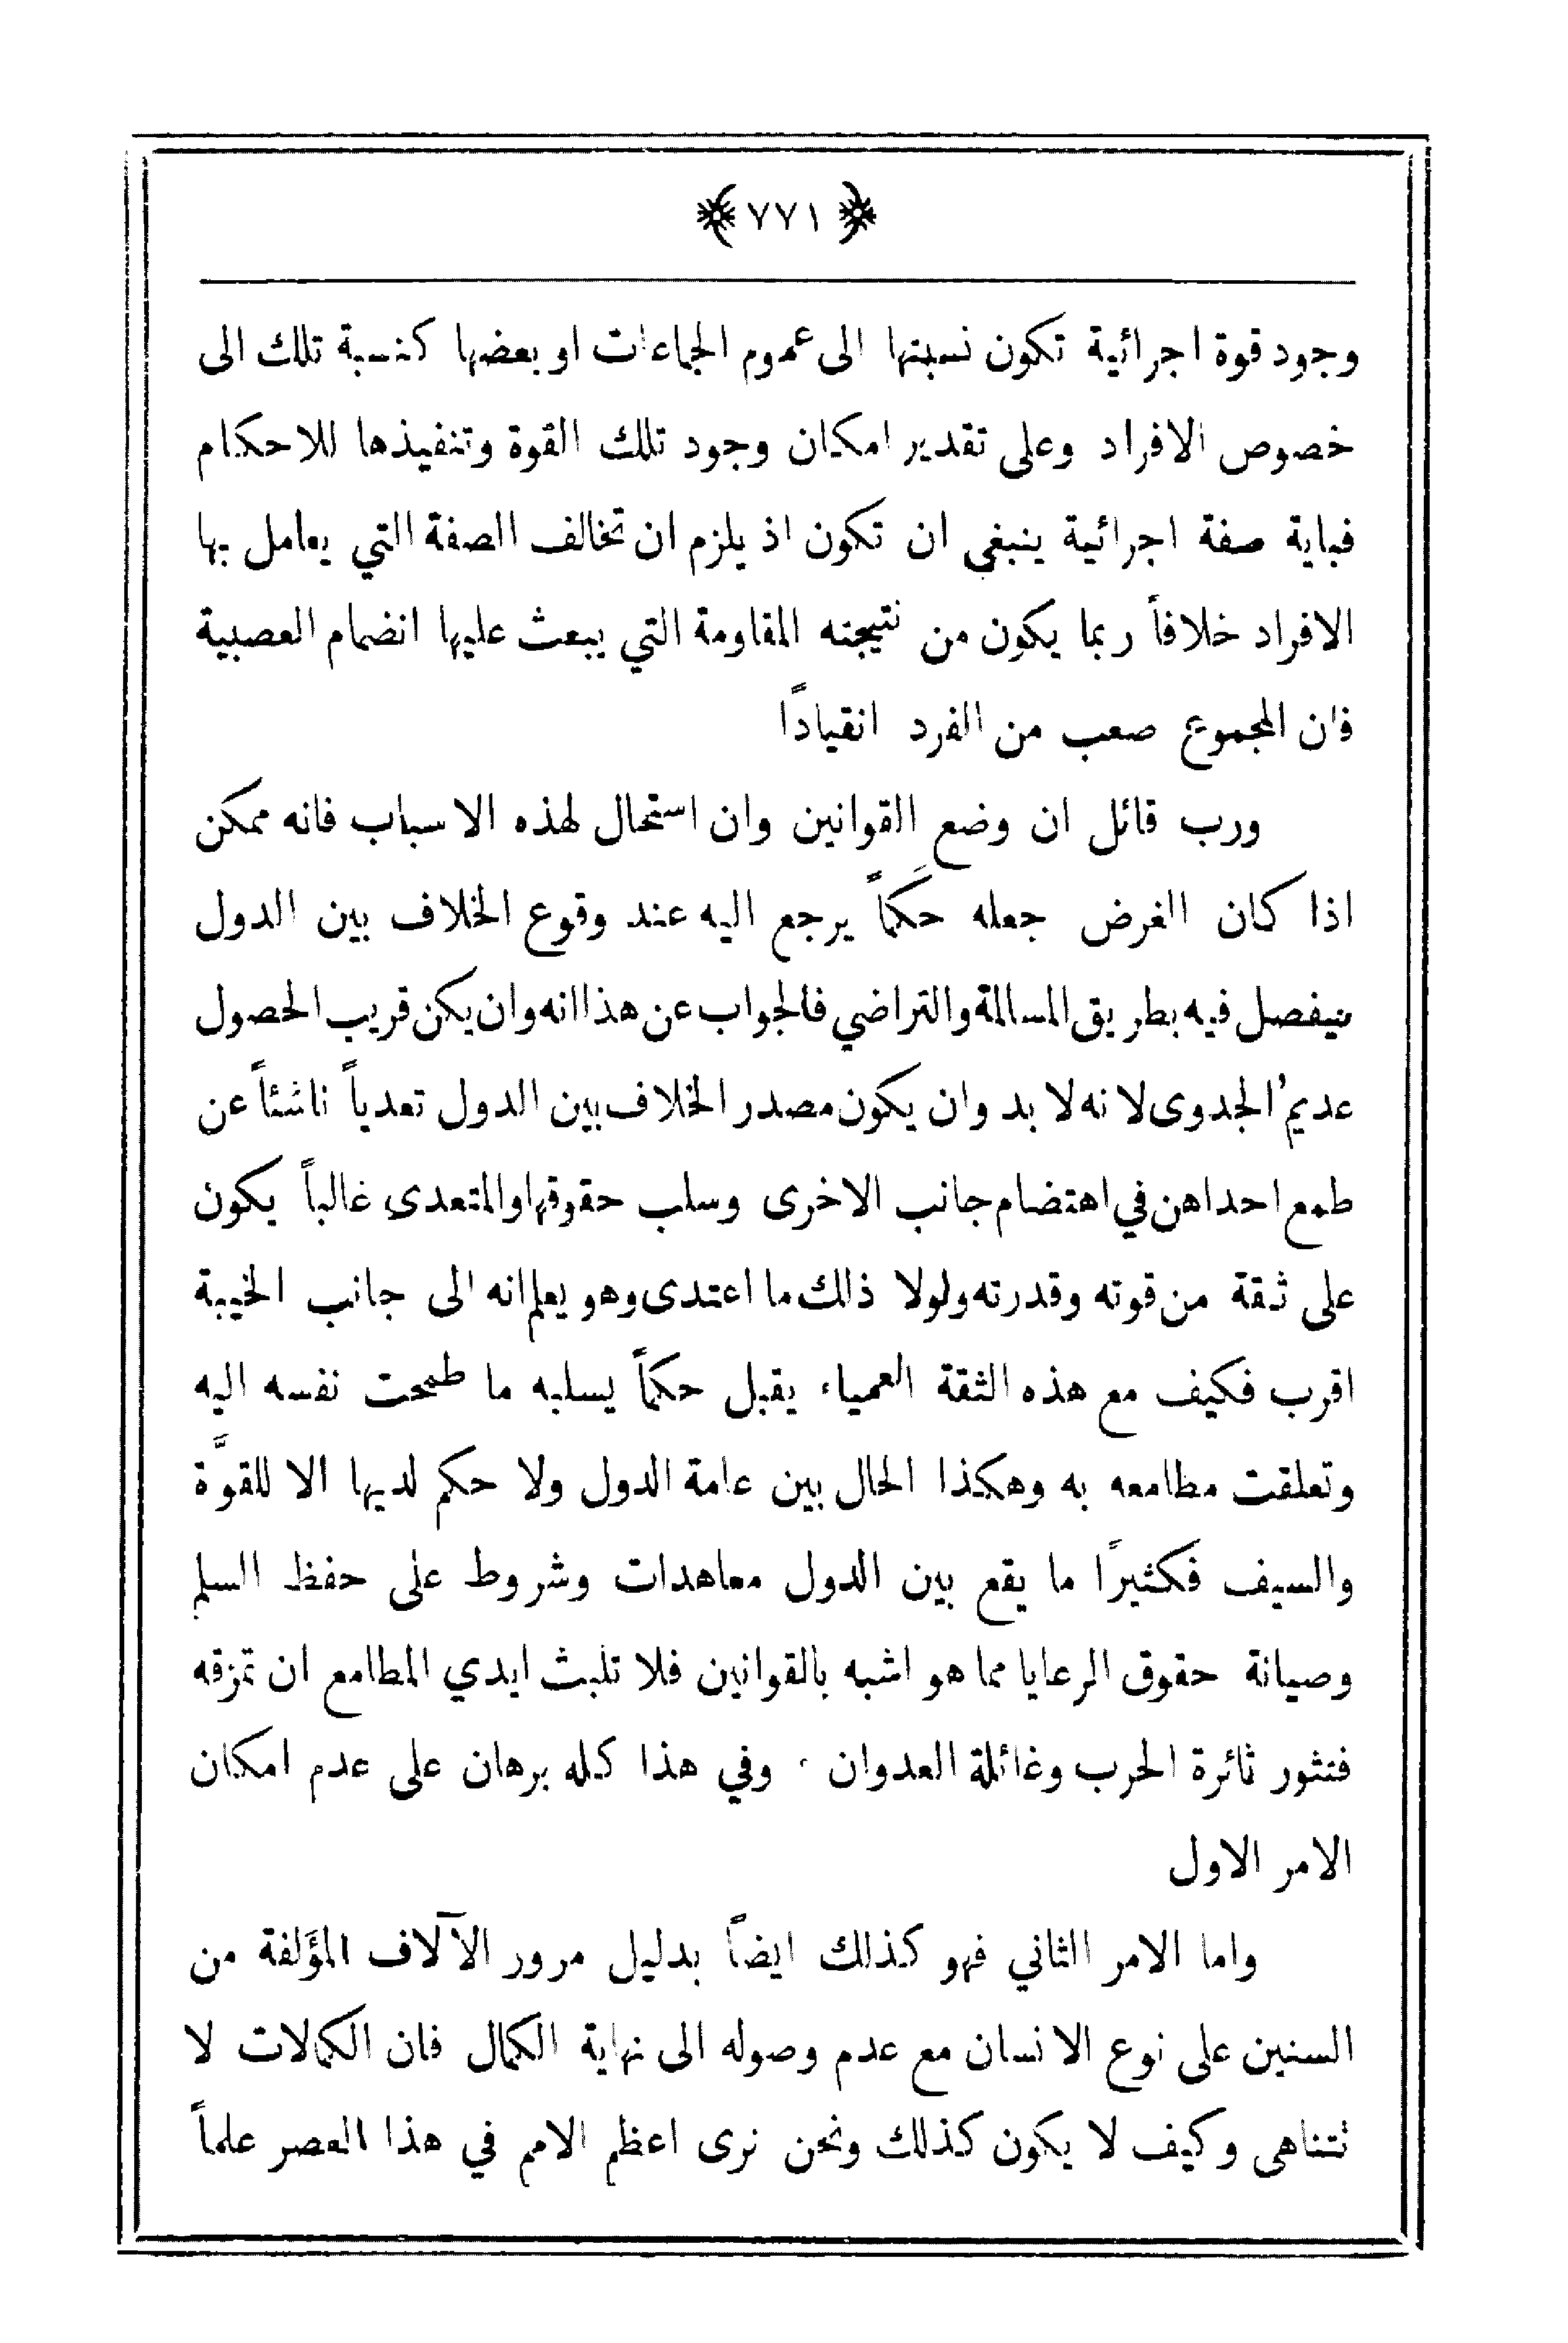 ﴿ ٧٧١ ﴾
وجود قوة اجرائية تكون نسبتها الى عموم الجماعات او بعضها كنسبة تلك الى
خصوص الافراد وعلى تقدير امكان وجود تلك القوة وتنفيذها للاحكام
فباية صفة اجرائية ينبغي ان تكون اذ يلزم ان تخالف الصفة التي يعامل بها
الافراد خلافاً ربما يكون من نتيجته المقاومة التي يبعث عليها انضمام العصبية
فان المجموع صعب من الفرد انقيادًا
ورب قائل ان وضع القوانين وان استحال لهذه الاسباب فانه ممكن
اذا كان الغرض جعله حَكماً يرجع اليه عند وقوع الخلاف بين الدول
فيفصل فيه بطريق المسالمة والتراضي فالجواب عن هذا انه وان يكن قريب الحصول
عديم الجدوى لانه لا بد وان يكون مصدر الخلاف بين الدول تعدياً ناشئاً عن
طمع احداهن في اهتضام جانب الاخرى وسلب حقوقها والمتعدي غالباً يكون
على ثقة من قوته وقدرته ولولا ذلك ما اعتدى وهو يعلم انه الى جانب الخيبة
اقرب فكيف مع هذه الثقة العمياء يقبل حكماً يسلبه ما طمحت نفسه اليه
وتعلقت مطامعه به وهكذا الحال بين عامة الدول ولا حكم لديها الا للقوَّة
والسيف فكثيرًا ما يقع بين الدول معاهدات وشروط على حفظ السلم
وصيانة حقوق الرعايا مما هو اشبه بالقوانين فلا تلبث ايدي المطامع ان تمزقه
فتثور ثائرة الحرب وغائلة العدوان ٠ وفي هذا كله برهان على عدم امكان
الامر الاول
واما الامر الثاني فهو كذلك ايضاً بدليل مرور الآلاف المؤَلفة من
السنين على نوع الانسان مع عدم وصوله الى نهاية الكمال فان الكمالات لا
تتناهى وكيف لا يكون كذلك ونحن نرى اعظم الامم في هذا العصر علماً